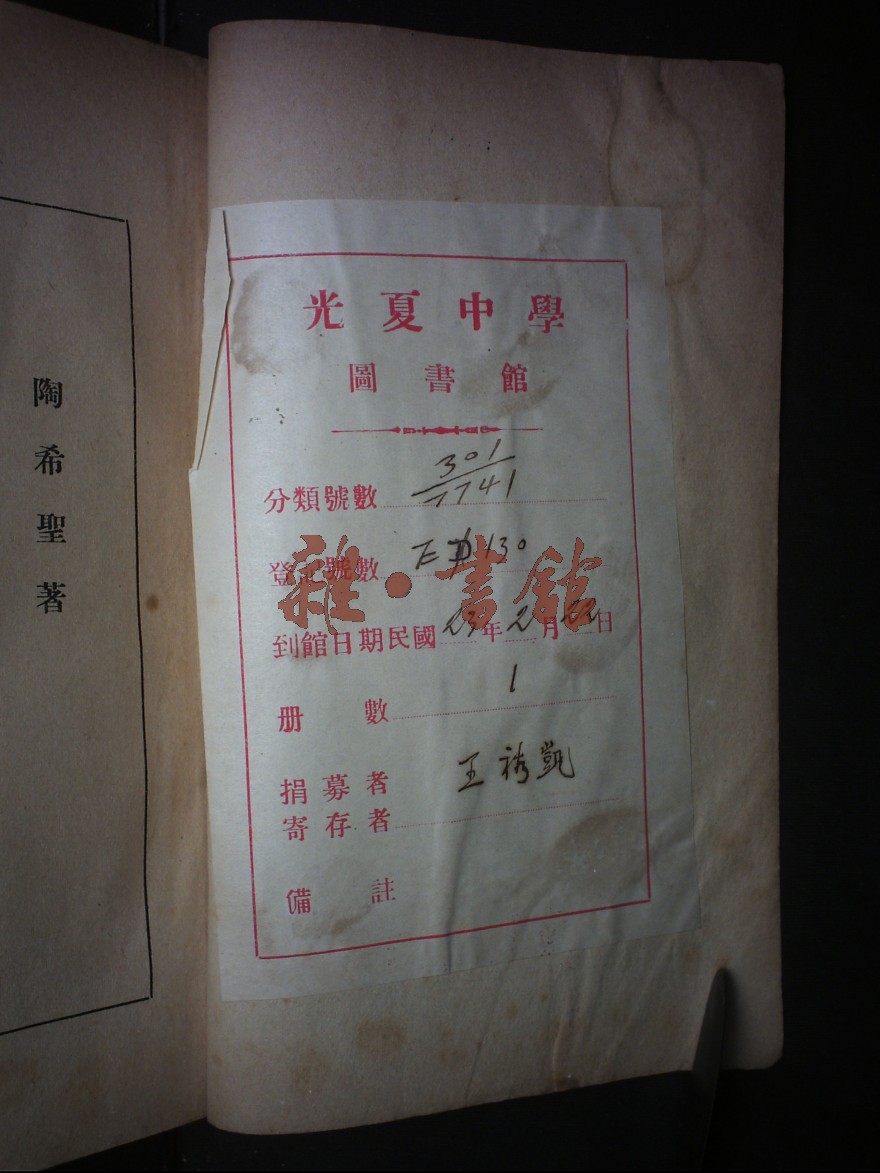 陶希聖著
光夏中學
圖書館
分類號數 301/7741
登記號數 130
雜·書館
到館日期民國23年2月22日
册數 1
捐募者 王祷凱
寄存者
備註